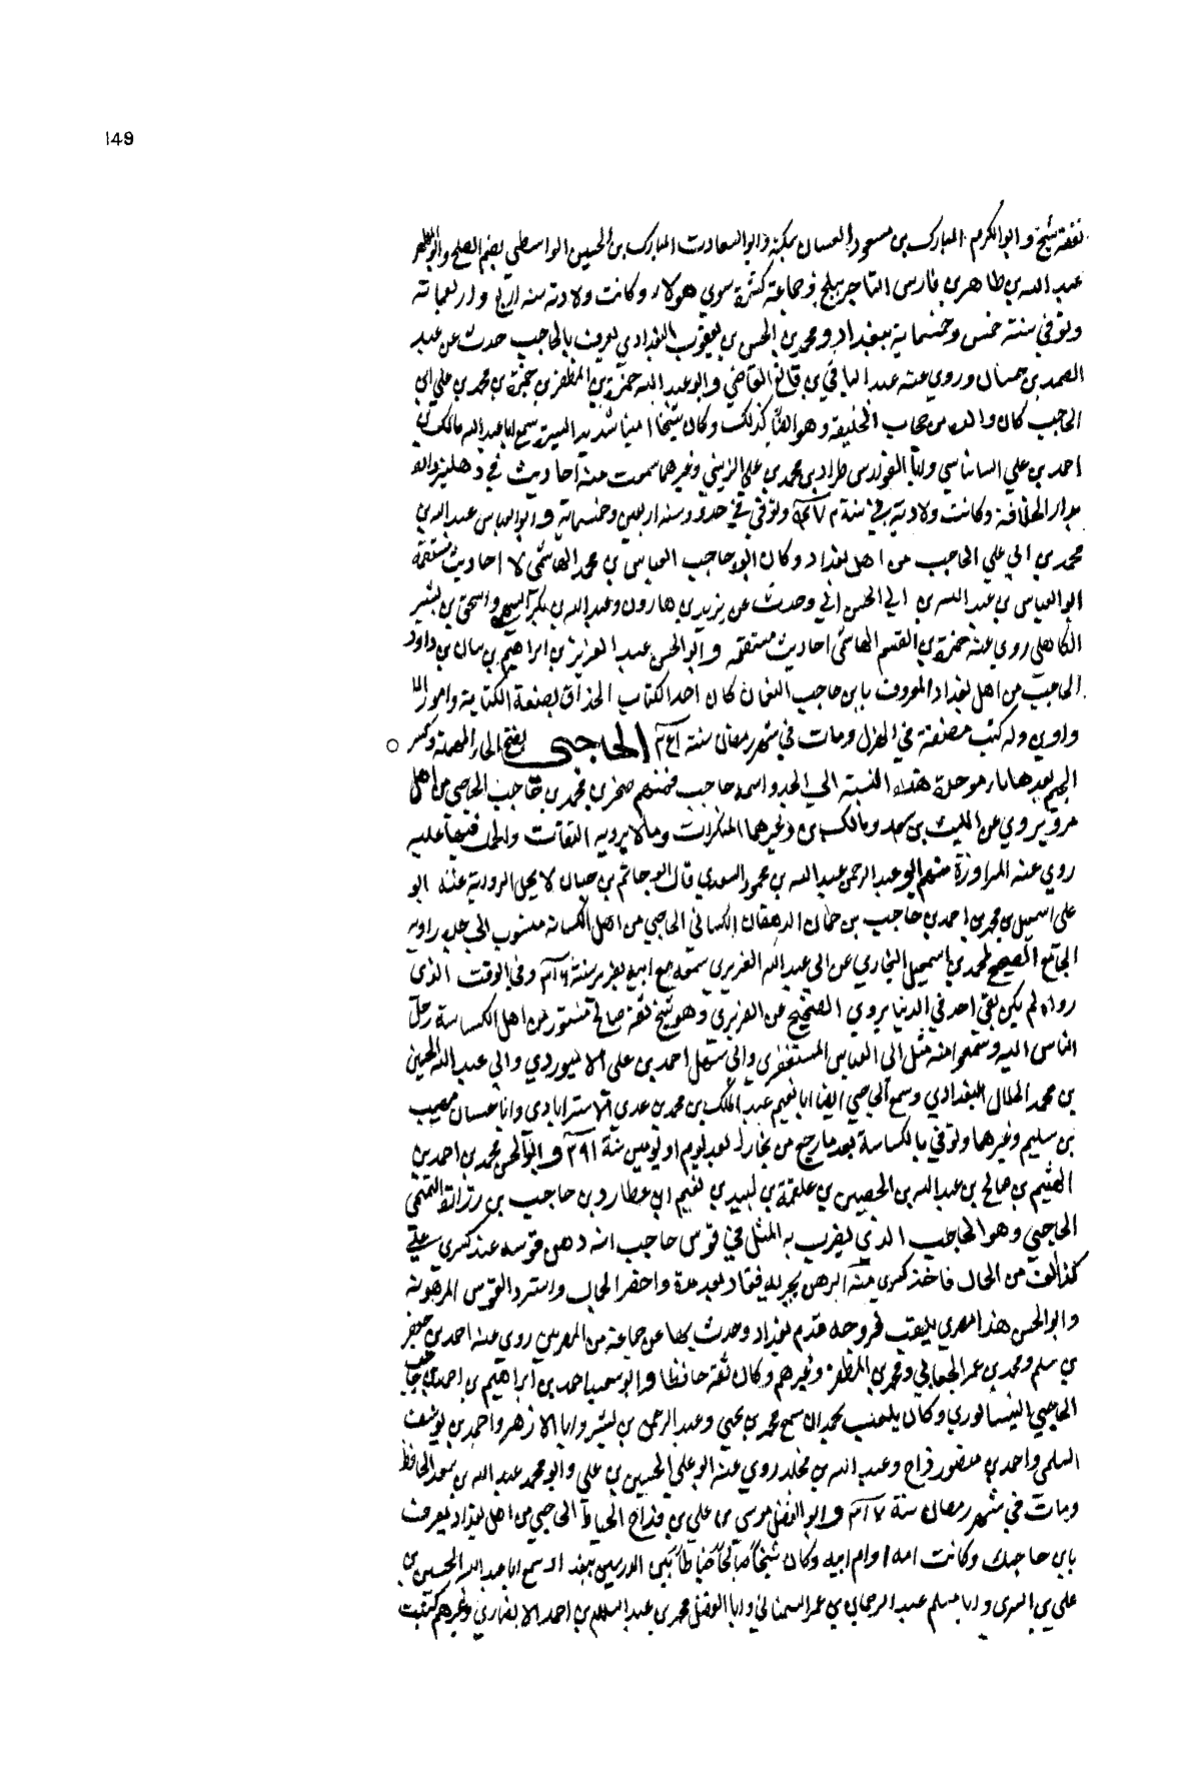 149
شيخ وابو الكرم المبارك بن مسعود الغسال بمكة وابو السعادت المبارك بن الحسين الواسطي بفم الصلح وابو المظفر
عبد الله بن طاهر بن فارس التاجر ببلخ وجماعة كثيرة سوى هولاء وكانت ولادته سنه اربع واربعماىة
وتوفي سنة خمس وخمسماية ببغداد ومحمد بن الحسن بن يعقوب البغدادي يعرف بالحاجب حدث عن عبد
الصمد بن حسان وروى عنه عبد الباقي بن قانع القاضي وابو عبد الله حمزة بن المظفر بن حمزة بن محمد بن علي ابن
الحاجب كان والده من حجاب الخليفة وهو ايضا كذلك وكان شيخا امينا شديد السيرة سمع ابا عبد الله مالك بن
احمد بن علي البانياسي وابا الفوارس طراد بن محمد بن علي الزينبي وغيرهما سمعت منه احاديث في دهليز داره
بدار الخلافة وكانت ولادته في سنة وتوفي في حدود سنه اربعين وخمسماية وابو العباس عبد الله بن
محمد بن ابي علي الحاجب من اهل بغداد وكان ابوه حاجب العباس بن محمد الهاشمي له احاديث مستقيمة
ابو العباس بن عبد الله بن ابي الحسن وحدث عن يزيد بن هارون وعبد الله بن بكر السهمي واسحق بن بشير
الكاهلي روى عنه حمزة بن القسم الهاشمي احاديث مستقيمه وابو الحسن عبد العزيز بن ابراهيم بن بيان بن داود
الحاجب من اهل بغداد المعروف بابن حاجب النعمان كان احد الكتاب الحذاق بصنعة الكتابة وامور الد
واوين وله كتب مصنفة في الهزل ومات في شهر رمضان سنة الحاجبي بفتح الحاء المهملة وكسر
الجيم بعدها باء موحدة هذه النسبة الى الجد واسمه حاجب فمنهم صخر بن محمد بن حاجب الحاجبي من اهل
مرو يروي عن الليث بن سعد ومالك بن وغيرهما المنكرات ومالا يرويه الثقات والحمل فيها عليه
روى عنه المراوزة منهم ابو عبد الرحمن عبد الله بن محمود السعدي قال ابو حاتم بن حبان لا يحل الرواية عنه ابو
علي اسمعيل بن محمد بن احمد بن حاجب بن الدهقان الكشاني الحاجبي من اهل الكشانه منسوب الى جده راويه
الجامع الصحيح لمحمد بن اسمعيل البخاري عن ابي عبد الله الفربري سمعه مع ابيه بفربر سنة وفي الوقت الذي
رواه لم يكن بقي احد في الدنيا يروي الصحيح عن الفربري وهو شيخ ثقة صالح مستور من اهل الكشانية رحل
الناس اليه وسمعوا منه مثل ابي العباس المستغفري وابي سهل احمد بن علي الابيوردي وابي عبد الله الحسين
بن محمد الخلال البغدادي وسمع الحاجبي ايضا ابا نعيم عبد الملك بن محمد بن عدي الاسترابادي وابا حسان مهيب
بن سليم وغيرهما وتوفي بالكشانية بعد ما رجع من بخارا بعد يوم او يومين سنة ٣٩١ وابو الحسن محمد بن احمد بن
الهيثم بن صالح بن عبد الله بن الحصين بن علقمة بن لبيد بن نعيم ابن عطارد بن حاجب بن زرارة التميمي
الحاجبي وهو الحاجب الذي يضرب به المثل في قوس حاجب انه رهن قوسه عند كسرى على
كذا الف من الجمال فاخذ كسرى منه الرهن فعاد بعد مدة واحضر الجمال واسترد القوس المرهونه
وابو الحسن هذا مصري يلقب فروجه قدم بغداد وحدث بها عن جماعة من المصريين روى عنه احمد بن جعفر
بن سلم ومحمد بن عمر الجعابي ومحمد بن المظفر وغيرهم وكان ثقة حافظا وابو سعيد احمد بن ابراهيم بن احمد بن حاجب
الحاجبي النيسابوري وكان يلقب بحمدان سمع محمد بن يحيى وعبد الرحمن بن بشر وابا الازهر واحمد بن يوسف
السلمي واحمد بن منصور زاج وعبد الله بن مخلد روى عنه ابو علي الحسين بن علي وابو محمد عبد الله بن سعد الحافظ
ومات في شهر رمضان سنة وابو الفضل موسى بن علي بن قداح الخياط الحاجبي من اهل بغداد يعرف
بابن حاجبك وكانت امه او ام ابيه وكان شيخا صالحا خياطا سمع ابا عبد الله الحسين بن
علي بن البسري وابا مسلم عبد الرحمان بن عمر السمناني وابا الفضل محمد بن عبد السلام بن احمد الانصاري وغيرهم كتبت